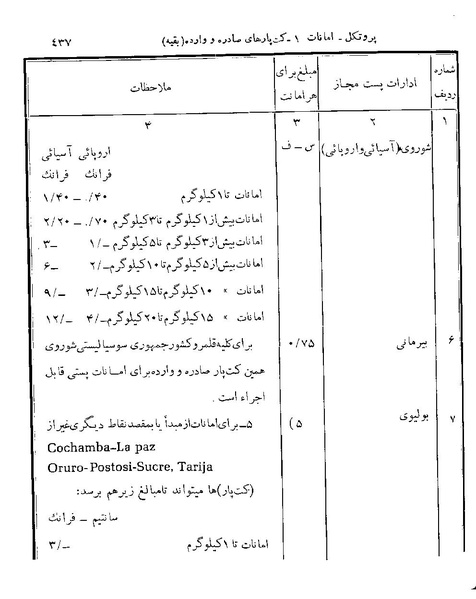 پروتکل ـ امانات ۱ ـ کت‌پارهای صادره و وارده (بقیه) ۴۳۷
شماره ردیف ادارات پست مجاز مبلغ برای هر امانت ملاحظات
۱ ۲ ۳ ۴
شوروی (آسیائی و اروپائی) س ـ ف
اروپائی آسیائی
فرانك فرانك
امانات تا ۱ کیلوگرم ۴۰/. ـ ۱/۴۰
امانات بیش از ۱ کیلوگرم تا ۳ کیلوگرم ۷۰/. ـ ۲/۲۰
امانات بیش از ۳ کیلوگرم تا ۵ کیلوگرم ـ/۱ ـ۳.
امانات بیش از ۵ کیلوگرم تا ۱۰ کیلوگرم ـ/۲ ـ۶
امانات » ۱۰ کیلوگرم تا ۱۵ کیلوگرم ـ/۳ ـ/۹
امانات » ۱۵ کیلوگرم تا ۲۰ کیلوگرم ـ/۴ ـ/۱۲
۶ بیرمانی ۰/۷۵ برای کلیه قلمرو کشور جمهوری سوسیالیستی شوروی
همین کت‌پار صادره و وارده برای امانات پستی قابل
اجراء است .
۷ بولیوی ۵) ۵ ـ برای امانات از مبدأ یا بمقصد نقاط دیگری غیر از
Cochamba–La paz
Oruro-Postosi-Sucre, Tarija
(کت‌پار)ها میتواند تا مبالغ زیر هم برسد:
سانتیم ـ فرانك
امانات تا ۱ کیلوگرم ـ/۳